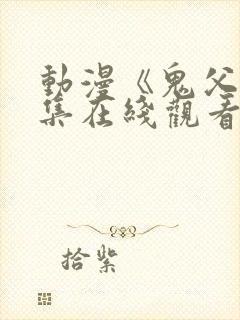 動漫《鬼父
集在綫觀看
拾紫